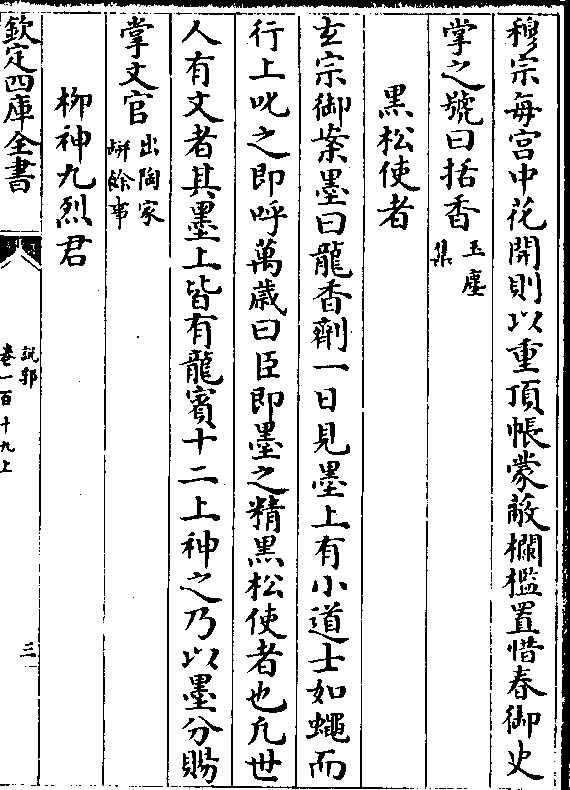 穆宗每宫中花開則以重頂帳蒙蔽欄檻置惜春御史
掌之號曰括香玉塵集
黑松使者
玄宗御案墨曰龍香劑一日見墨上有小道士如蠅而
行上叱之即呼萬歲曰臣即墨之精黑松使者也凡世
人有文者其墨上皆有龍賓十二上神之乃以墨分賜
掌文官出陶家缾餘事
栁神九烈君
欽定四庫全書
說郛
卷一百十九上
三